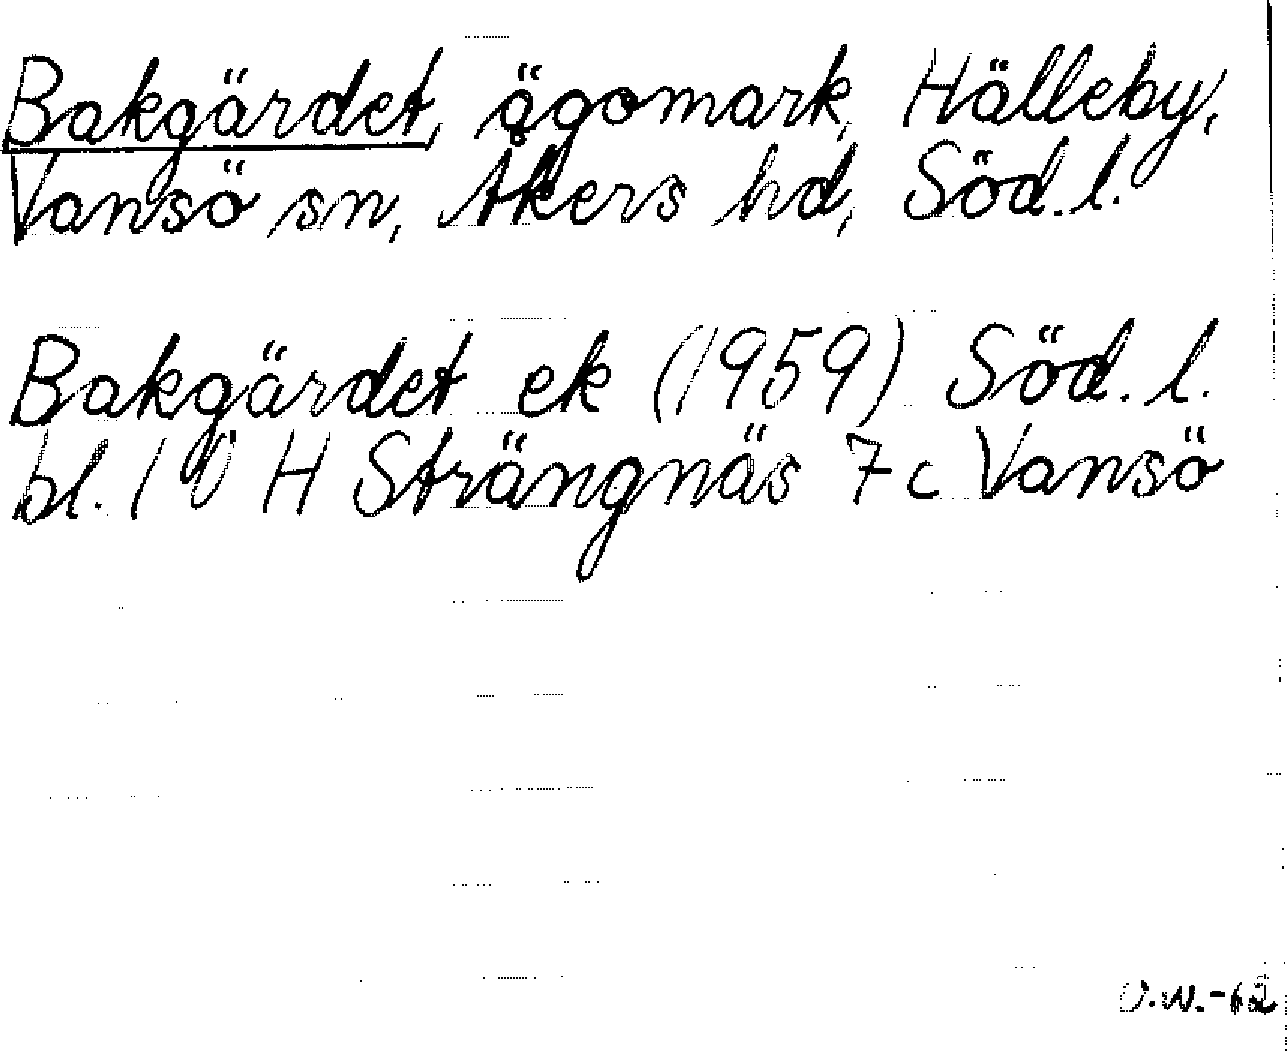 Bakgärdet, ägomark, Hälleby,
Vansö sn, Åkers hd, Söd.l.
Bakgärdet ek (1959) Söd.l.
bl. 10 H Strängnäs 7c Vansö
U.W.-62